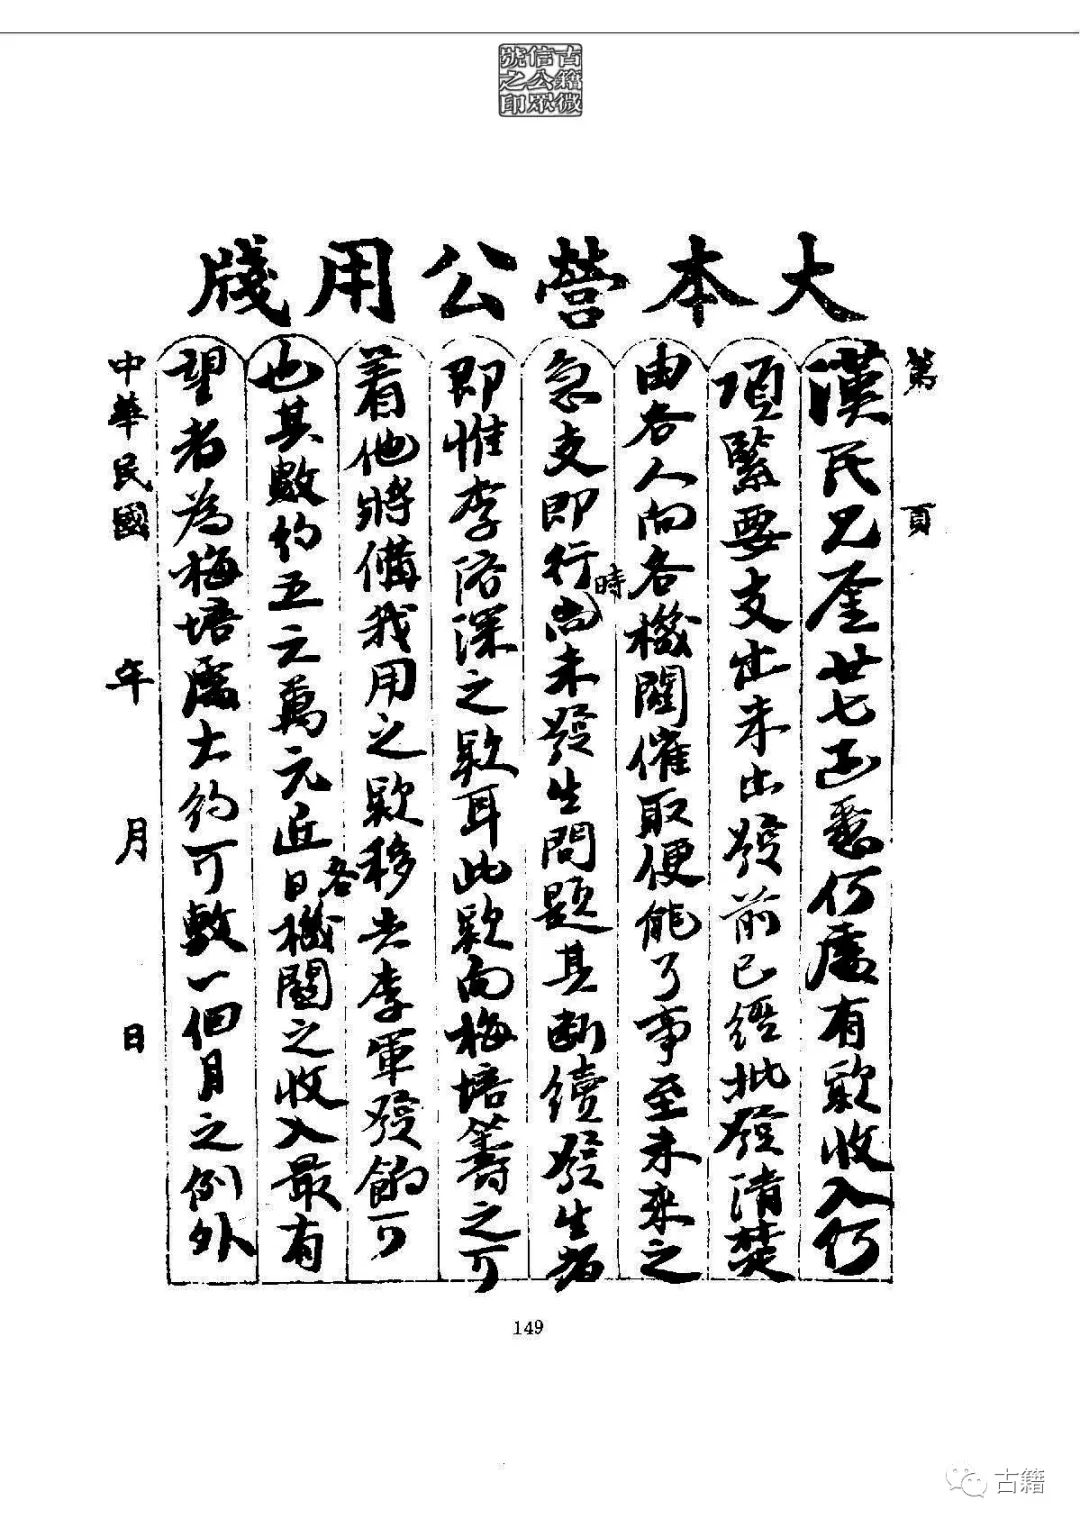 古籍微
信公眾
號之印
大本營公用牋
第 頁
漢民兄鑒廿七函悉何處有款收入何
項緊要支出未出發前已經批發清楚
由各人向各機關催取便能了事至未來之
急支即行時尚未發生問題其斷續發生者
即惟李济深之款耳此款向梅培籌之可
着他將備我用之款移去李軍發餉可
也其數約五六萬元近日各機關之收入最有
望者為梅培處大約可敷一個月之例外
中華民國 年 月 日
149
古籍